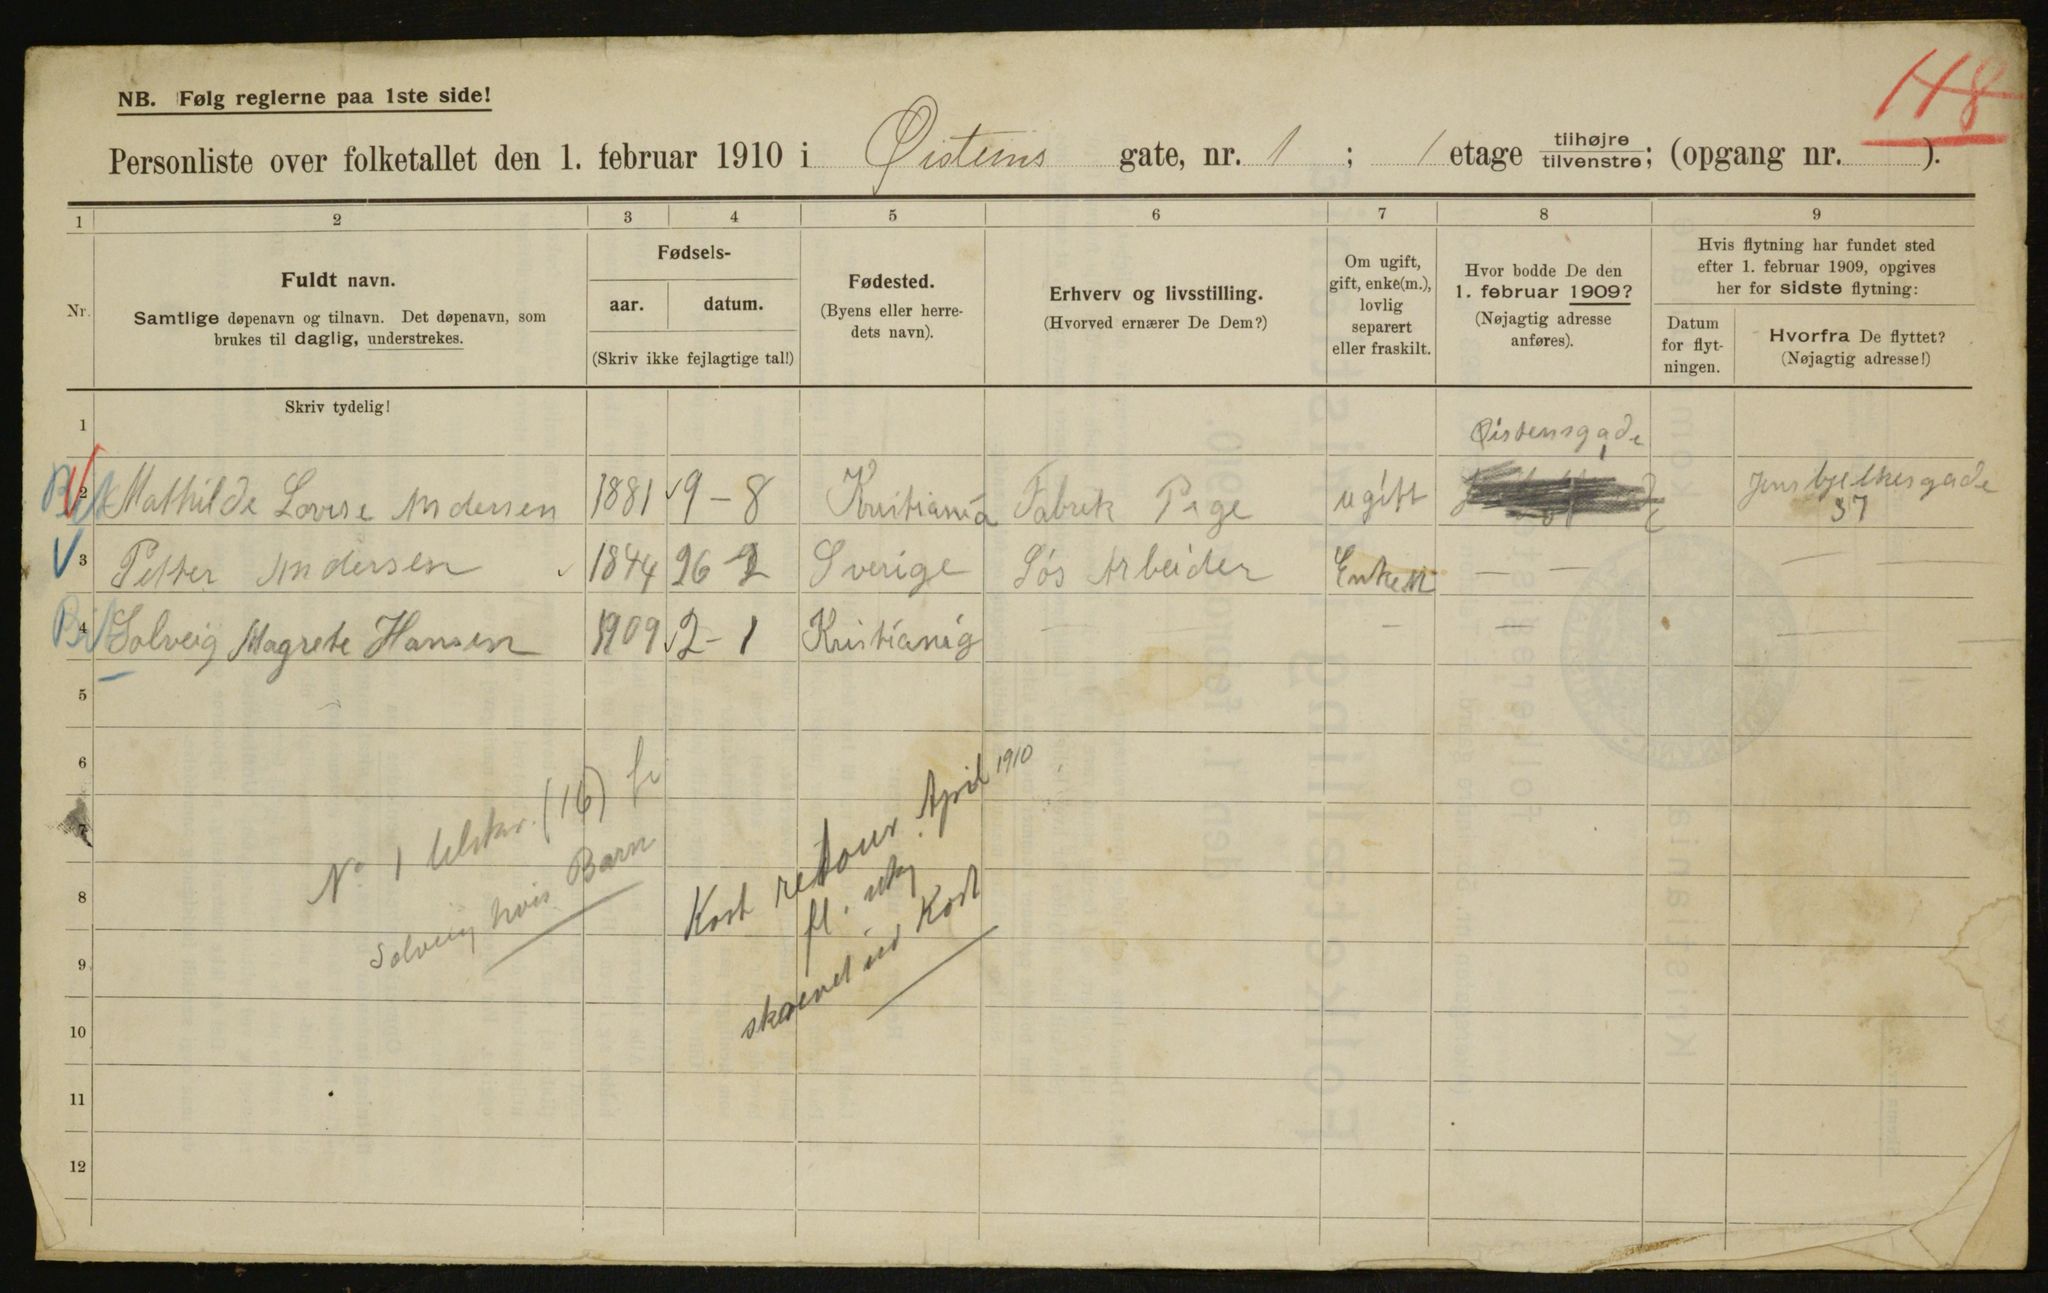 118
NB. Følg reglerne paa 1ste side!
Personliste over folketallet den 1. februar 1910 i Øisteins gate, nr. 1 ; 1 etage tilhøjre tilvenstre; (opgang nr. ).
1 2 3 4 5 6 7 8 9
Nr.
Fuldt navn.
Samtlige døpenavn og tilnavn. Det døpenavn, som
brukes til daglig, understrekes.
Fødsels-
aar. datum.
(Skriv ikke fejlagtige tal!)
Fødested.
(Byens eller herre-
dets navn).
Erhverv og livsstilling.
(Hvorved ernærer De Dem?)
Om ugift,
gift, enke(m.),
lovlig
separert
eller fraskilt.
Hvor bodde De den
1. februar 1909?
(Nøjagtig adresse
anføres).
Hvis flytning har fundet sted
efter 1. februar 1909, opgives
her for sidste flytning:
Datum
for flyt-
ningen.
Hvorfra De flyttet?
(Nøjagtig adresse!)
Skriv tydelig!
1 Øistensgade 1
2 Mathilde Lovise Andersen 1881 9-8 Kristiania Fabrik Pige ugift Jens bjelkesgade 37
3 Petter Andersen 1844 26-2 Sverige Løs Arbeider Enkem — — —
4 Solveig Magrete Hansen 1909 2-1 Kristiania — — — — — —
5
6
7
8
9
10
11
12
No 1 (16)
Solveig hvis Barn
Kort retour April 1910
fl.
skrevet Kort